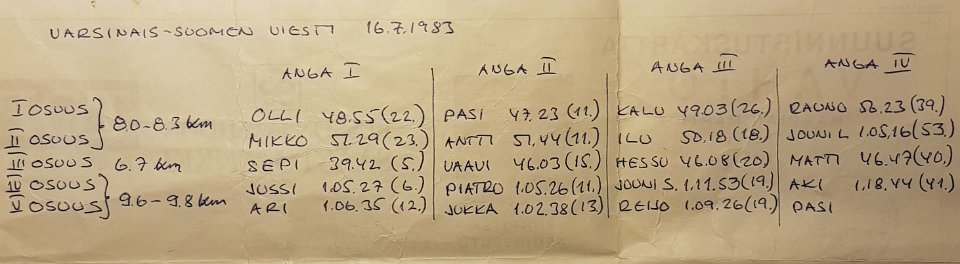 VARSINAIS-SUOMEN VIESTI 16.7.1983
ANGA I ANGA II ANGA III ANGA IV
I OSUUS OLLI 48.55 (22.) PASI 47.23 (11.) KALU 49.03 (26.) RAUNO 56.23 (39.)
8.0-8.3 km
II OSUUS MIKKO 51.29 (23.) ANTTI 51.44 (11.) ILU 50.18 (18.) JOUNI L 1.05,16 (53.)
III OSUUS 6.7 km SEPI 39.42 (5.) VAAVI 46.03 (15.) HESSU 46.08 (20) MATTI 46.47 (40.)
IV OSUUS JUSSI 1.05.27 (6.) PIATRO 1.05.26 (11.) JOUNI S. 1.11.53 (19.) AKI 1.18.44 (41.)
9.6-9.8 km
V OSUUS ARI 1.06.35 (12.) JUKKA 1.02.38 (13) REIJO 1.09.26 (19.) PASI